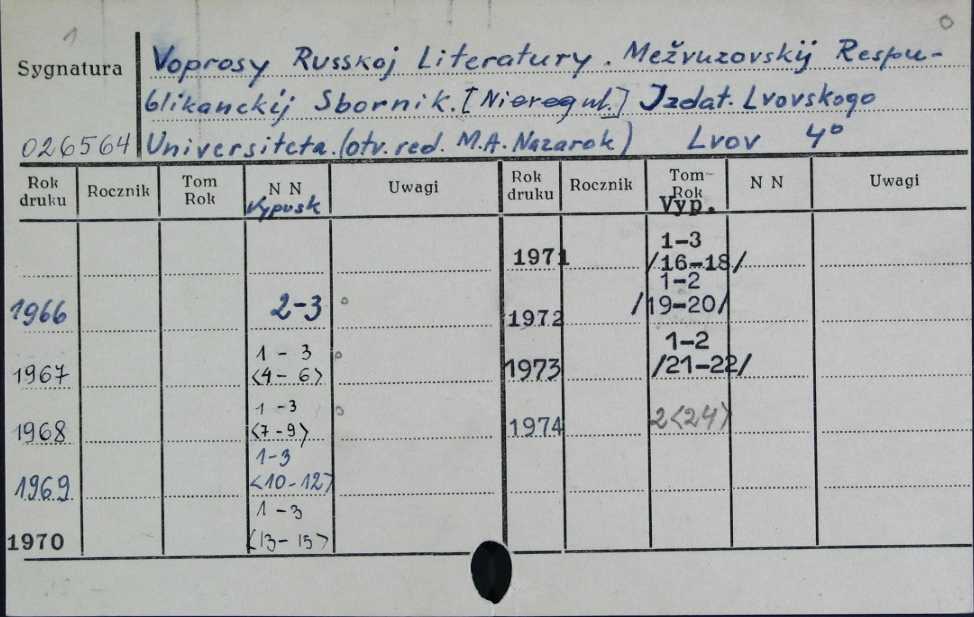 1
0
Sygnatura
Voprosy Russkoj Literatury. Mežvuzovskij Respu-
blikanckij Sbornik. [Nieregul.] Izdat. Lvovskogo
026564 Universiteta. (otv. red. M.A. Nazarok) Lvov 4º
Rok druku Rocznik Tom Rok N N Uwagi Rok druku Rocznik Tom- Rok N N Uwagi
Vypusk Vyp.
1971 1-3 /16-18/
1966 2-3 o 1972 1-2 /19-20/
1967 1 - 3 <4 - 6> o 1973 1-2 /21-22/
1968 1 - 3 <7 - 9> o 1974 2<24>
1969 1-3 <10-12>
1970 1 - 3 <13 - 15>